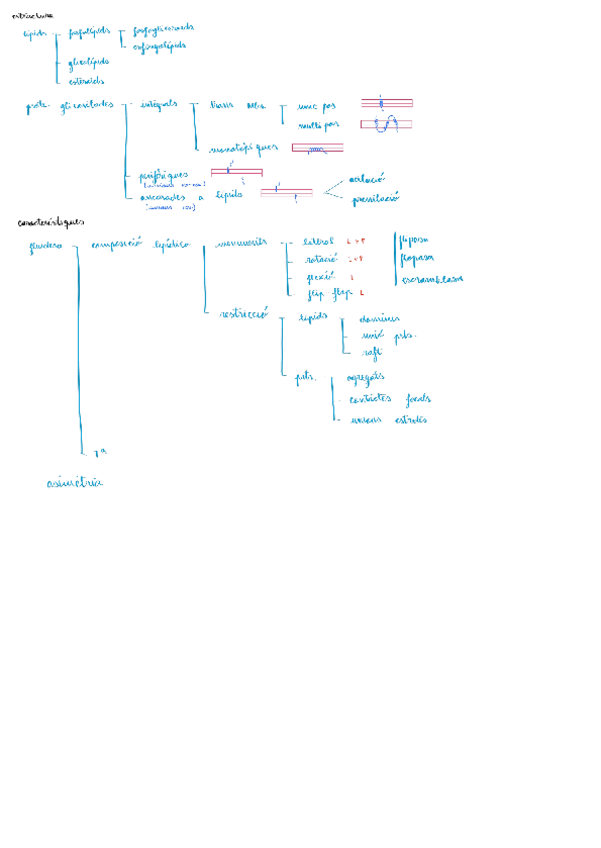 estructura
lípids
fosfolípids
fosfoglicerids
esfingolípids
glicolípids
esteroids
prots. glicosilades
integrals
trans
unic pas
multi pas
monotòpiques
perifèriques
ancorades a lípids
acilació
prenilació
característiques
fluidesa
composició lipídica
moviments
lateral L+P
rotació L+P
flexió L
flip flop L
flipasa
flopasa
escramblasa
restricció
lípids
dominis
unió prts.
raft
prts.
agregats
contactes focals
unions estretes
Tª
asimetria